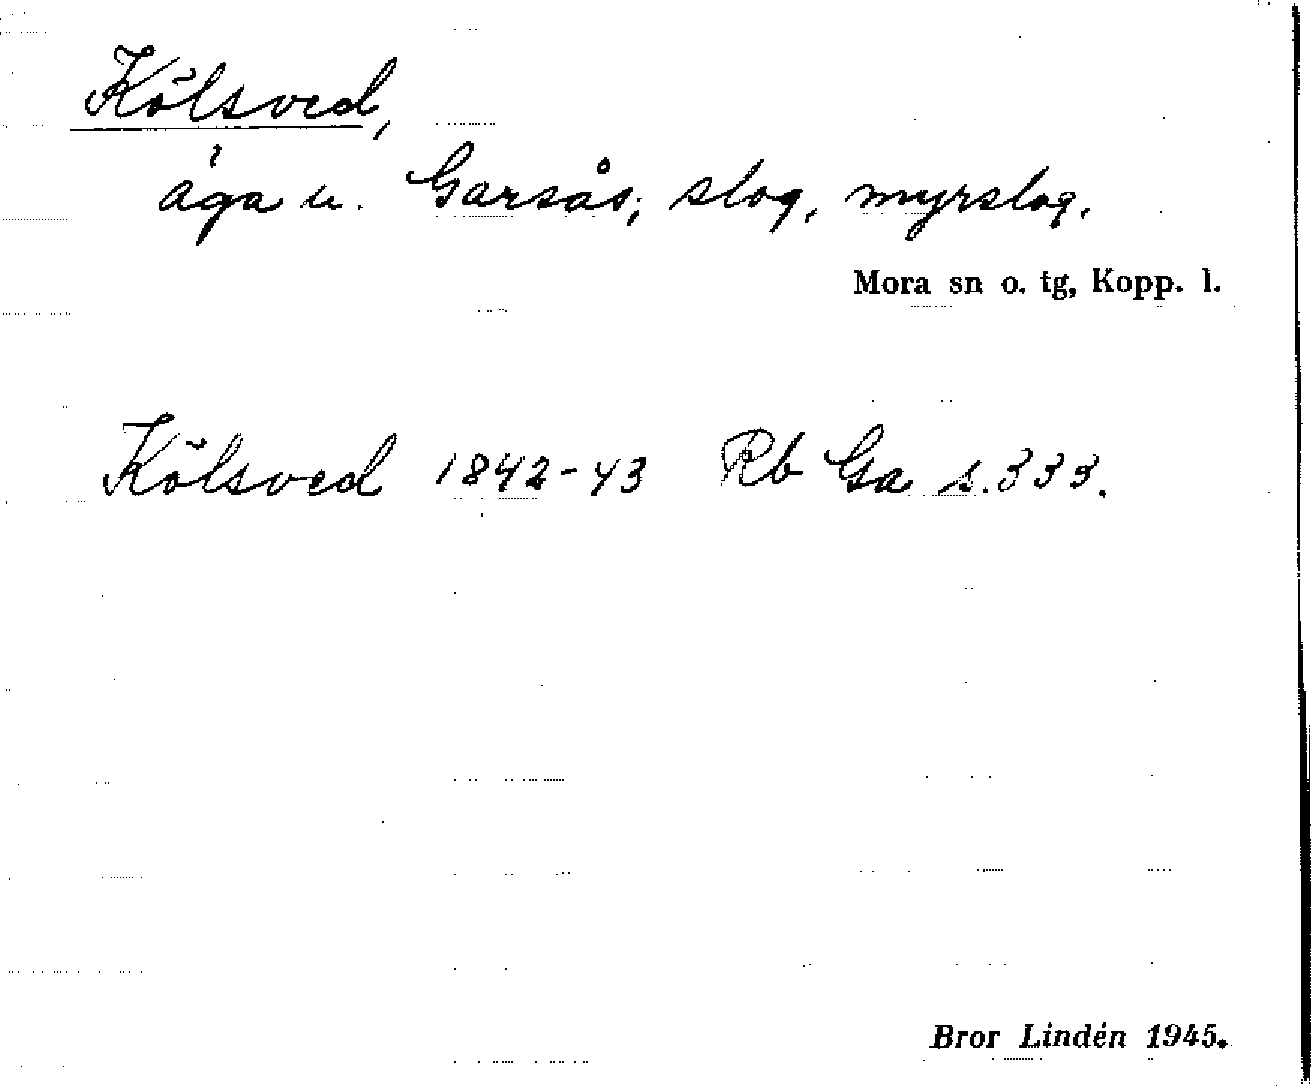 Kölsved,
äga u. Garsås; slog, myrslog.
Mora sn o. tg, Kopp. l.
Kölsved 1842-43 Rb Ga s. 333.
Bror Lindén 1945.